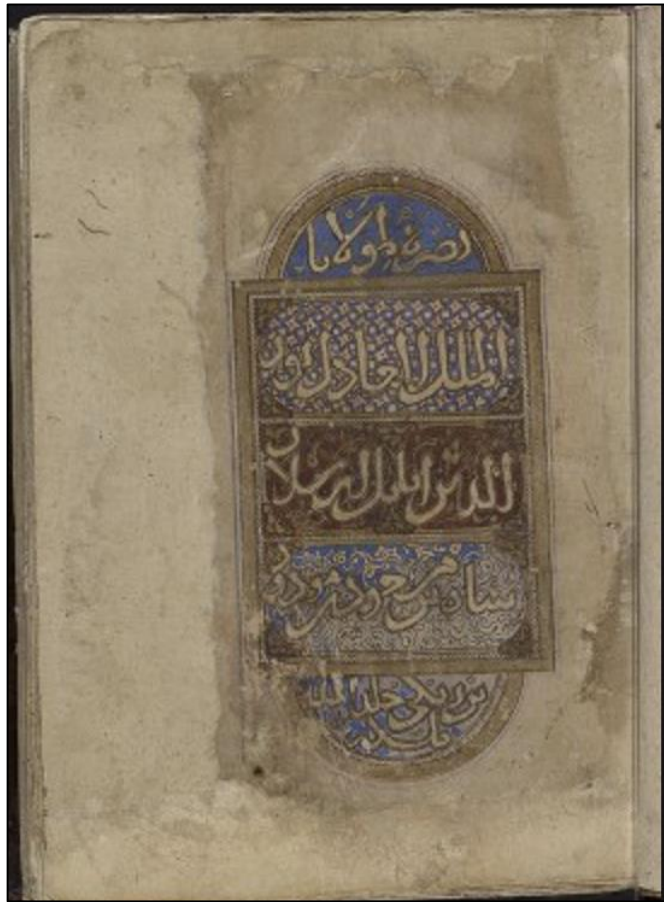 مولانا
الملك العادل نور
الدين ارسلان
شاه بن مسعود بن مودود
بن زنكي خلد الله
ملكه